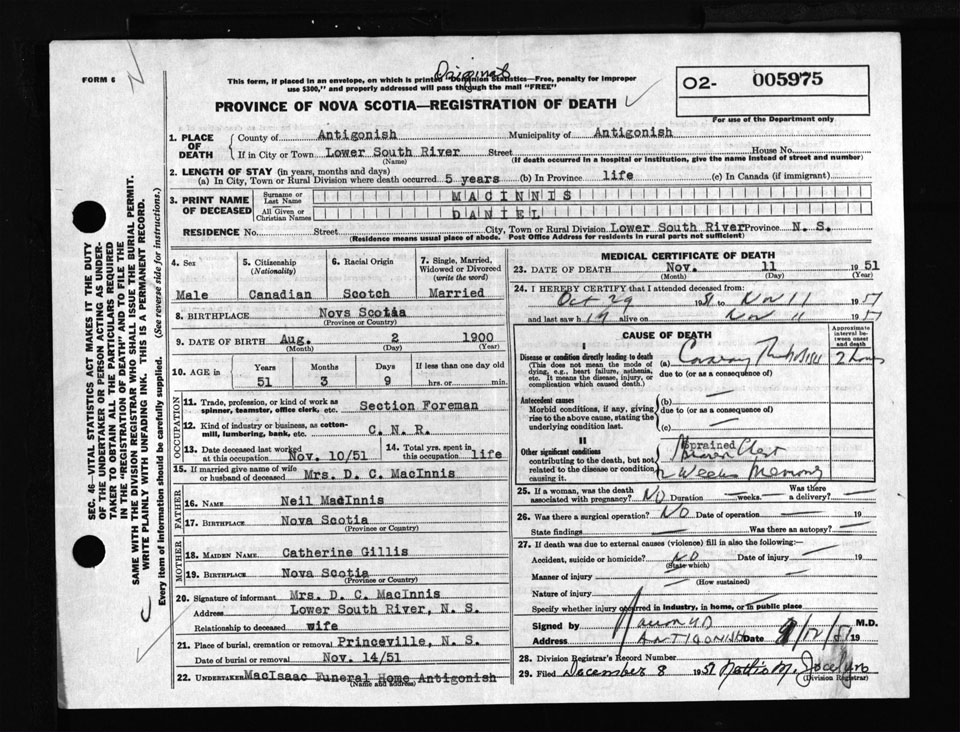 FORM 6
Original
This form, if placed in an envelope, on which is printed "Dominion Statistics—Free, penalty for improper
use $300," and properly addressed will pass through the mail "FREE"
PROVINCE OF NOVA SCOTIA—REGISTRATION OF DEATH
02- 005975
For use of the Department only
SEC. 46—VITAL STATISTICS ACT MAKES IT THE DUTY
OF THE UNDERTAKER OR PERSON ACTING AS UNDER-
TAKER TO OBTAIN ALL THE PARTICULARS REQUIRED
IN THE "REGISTRATION OF DEATH" AND TO FILE THE
SAME WITH THE DIVISION REGISTRAR WHO SHALL ISSUE THE BURIAL PERMIT.
WRITE PLAINLY WITH UNFADING INK. THIS IS A PERMANENT RECORD.
Every item of information should be carefully supplied. (See reverse side for instructions.)
1. PLACE OF DEATH
County of Antigonish Municipality of Antigonish
If in City or Town Lower South River Street House No.
(Name) (If death occurred in a hospital or institution, give the name instead of street and number)
2. LENGTH OF STAY (in years, months and days)
(a) In City, Town or Rural Division where death occurred 5 years (b) In Province life (c) In Canada (if immigrant)
3. PRINT NAME OF DECEASED
Surname or Last Name MACINNIS
All Given or Christian Names DANIEL
RESIDENCE No. Street City, Town or Rural Division Lower South River Province N. S.
(Residence means usual place of abode. Post Office Address for residents in rural parts not sufficient)
4. Sex Male
5. Citizenship (Nationality) Canadian
6. Racial Origin Scotch
7. Single, Married, Widowed or Divorced (write the word) Married
8. BIRTHPLACE Nova Scotia
(Province or Country)
9. DATE OF BIRTH Aug. 2 1900
(Month) (Day)
10. AGE in Years Months Days If less than one day old
51 3 9 hrs. or min.
OCCUPATION
11. Trade, profession, or kind of work as spinner, teamster, office clerk, etc. Section Foreman
12. Kind of industry or business, as cotton-mill, lumbering, bank, etc. C. N. R.
13. Date deceased last worked at this occupation Nov. 10/51
14. Total yrs. spent in this occupation life
15. If married give name of wife or husband of deceased Mrs. D. C. MacInnis
FATHER
16. NAME Neil MacInnis
17. BIRTHPLACE Nova Scotia
(Province or Country)
MOTHER
18. MAIDEN NAME Catherine Gillis
19. BIRTHPLACE Nova Scotia
(Province or Country)
20. Signature of informant Mrs. D. C. MacInnis
Address Lower South River, N. S.
Relationship to deceased wife
21. Place of burial, cremation or removal Princeville, N. S.
Date of burial or removal Nov. 14/51
22. UNDERTAKER MacIsaac Funeral Home Antigonish
(Name and address)
MEDICAL CERTIFICATE OF DEATH
23. DATE OF DEATH Nov. 11 1951
(Month) (Day)
24. I HEREBY CERTIFY that I attended deceased from:
Oct 29 51 to Nov 11 1951
and last saw h alive on Nov 11 1951
CAUSE OF DEATH
Approximate interval between onset and death
I
Disease or condition directly leading to death
(This does not mean the mode of dying, e.g., heart failure, asthenia, etc. It means the disease, injury, or complication which caused death.)
(a) Coronary Thrombosis 2 hours
due to (or as a consequence of)
Antecedent causes
Morbid conditions, if any, giving rise to the above cause, stating the underlying condition last.
(b)
due to (or as a consequence of)
(c)
II
Other significant conditions
contributing to the death, but not related to the disease or condition causing it.
Sprained
Chest
2 Weeks
25. If a woman, was the death associated with pregnancy? NO Duration weeks. Was there a delivery?
26. Was there a surgical operation? NO Date of operation 19
State findings Was there an autopsy?
27. If death was due to external causes (violence) fill in also the following:—
Accident, suicide or homicide? NO Date of injury 19
(State which)
Manner of injury
(How sustained)
Nature of injury
Specify whether injury occurred in industry, in home, or in public place
Signed by M.D.
Address ANTIGONISH Date 19
28. Division Registrar's Record Number
29. Filed December 8 1951 Nettie M. Jocelyn
(Division Registrar)